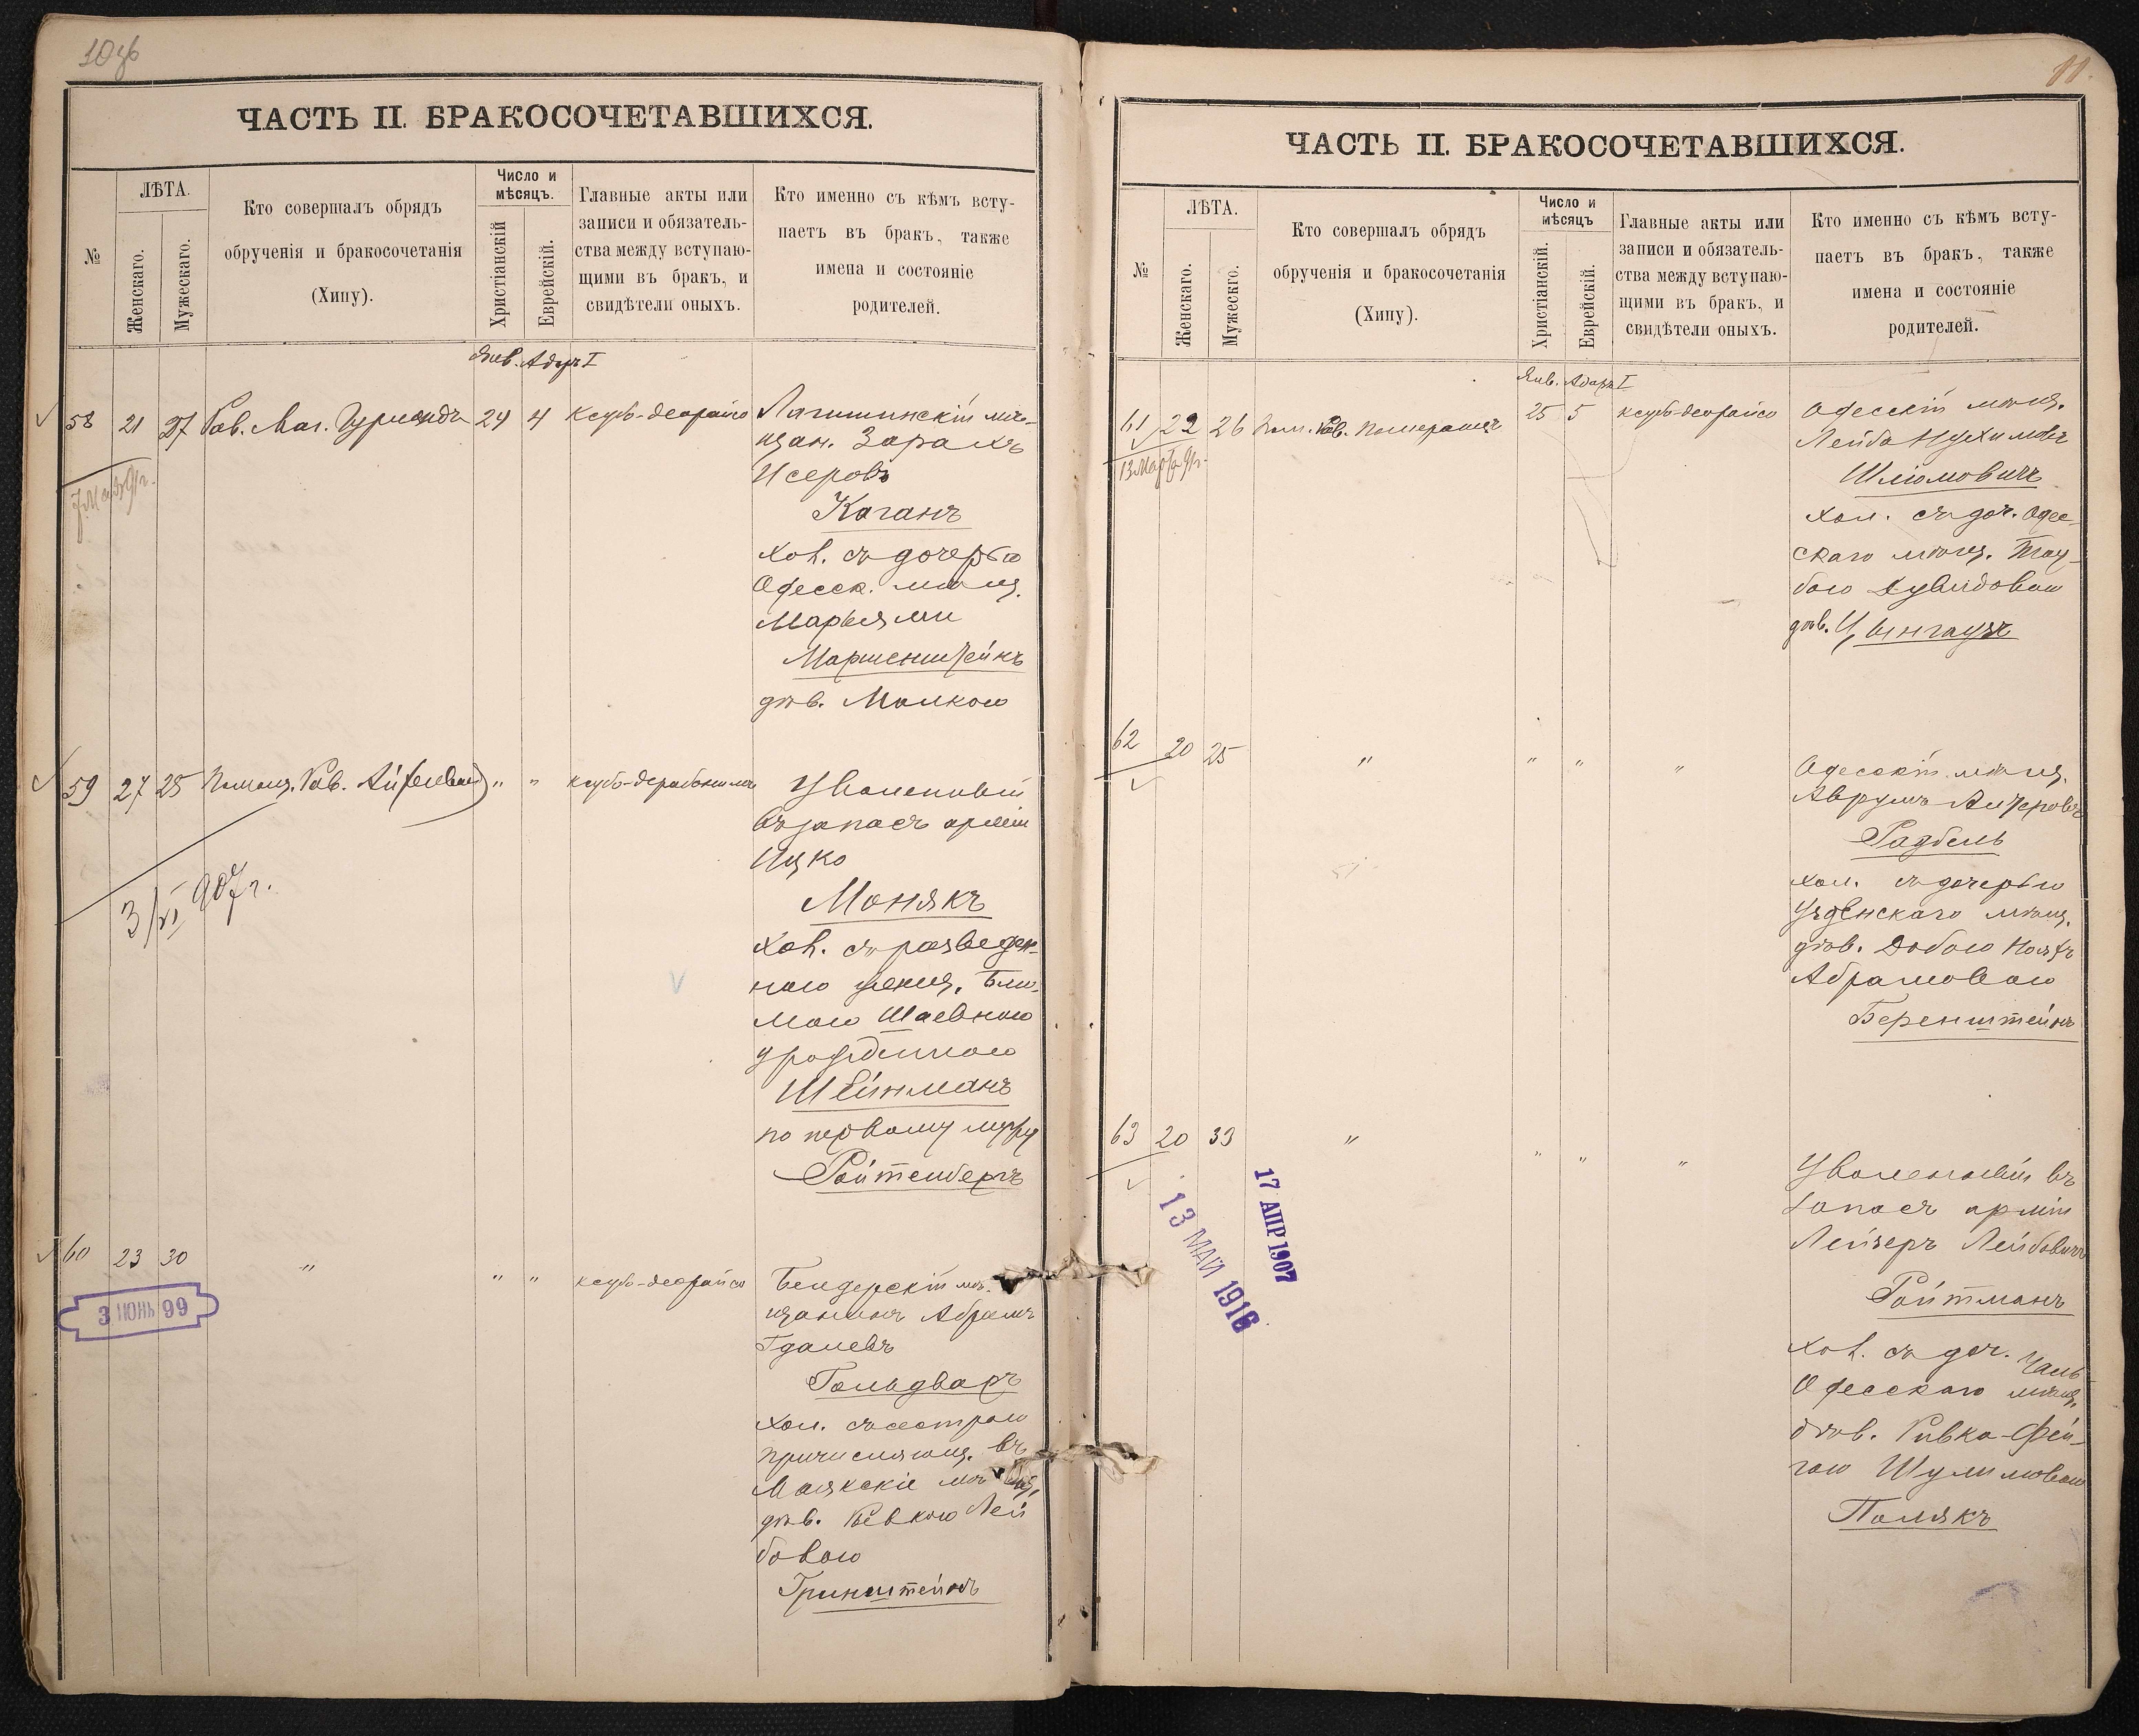 ЧАСТЬ II. БРАКОСОЧЕТАВШИХСЯ.
№
ЛѢТА.
Женскаго.
Мужескаго.
Кто совершалъ обрядъ
обрученія и бракосочетанія
(Хипу).
Число и
мѣсяцъ.
Христіанскій
Еврейскій.
Главные акты или
записи и обязатель-
ства между вступаю-
щими въ бракъ, и
свидѣтели оныхъ.
Кто именно съ кѣмъ всту-
паетъ въ бракъ, также
имена и состояніе
родителей.
Янв. Адаръ I
58 21 27 Рав. Маг. Гурляндъ 24 4 ксубъ-деорайсо
мѣ-
щан. Зарахъ
Исеровъ
Коганъ
хол. съ дочерью
Одесск. мѣщ.
Марьями
Маршенштейнъ
дѣв. Малкою
59 27 25 Помощ. Рав. " " ксубъ-дерабонимъ
3/VI 907 г.
Уволенный
въ запасъ арміи
Ицко
Монякъ
хол. съ разведен-
ною женщ. Блю-
мою Шаевною
урожденною
Шейнманъ
по первому мужу
Ройтенбергъ
60 23 30 " " " ксубъ-деорайсо
3 ІЮНЬ 99
Бендерскій мѣ-
щанинъ Абрамъ
Гдалевъ
Гольдваръ
хол. съ сестрою
причисляющ. въ
Маякскіе
дѣв. Ривкою Лей
бовою
Гринштейнъ
11.
ЧАСТЬ II. БРАКОСОЧЕТАВШИХСЯ.
№
ЛѢТА.
Женскаго.
Мужескго.
Кто совершалъ обрядъ
обрученія и бракосочетанія
(Хипу).
Число и
мѣсяцъ
Христіанскій.
Еврейскій.
Главные акты или
записи и обязатель-
ства между вступаю-
щими въ бракъ, и
свидѣтели оныхъ.
Кто именно съ кѣмъ всту-
паетъ въ бракъ, также
имена и состояніе
родителей.
Янв. Адаръ I
61 22 26 Пом. Рав. Померанцъ 25 5 ксубъ-деорайсо
Одесскій мѣщ.
Лейба Нухимовъ
Шліомовичъ
хол. съ доч. Одес-
скаго мѣщ. Тау-
бою Дувидовою
дѣв. Цвингаузъ
62 20 25 " " " "
Одесскій мѣщ.
Аврумъ Алтеровъ
Радбель
хол. съ дочерью
Узденскаго мѣщ.
дѣв. Добою
Абрамовою
Беренштейнъ
63 20 33 " " " "
13 МАЙ 1916
17 АПР 1907
Уволенный въ
запасъ арміи
Лейзеръ Лейбовичъ
Ройтманъ
хол. съ доч.
Одесскаго мѣщ.
дѣв. Ривка-Фей-
гою Шулимовою
Полякъ